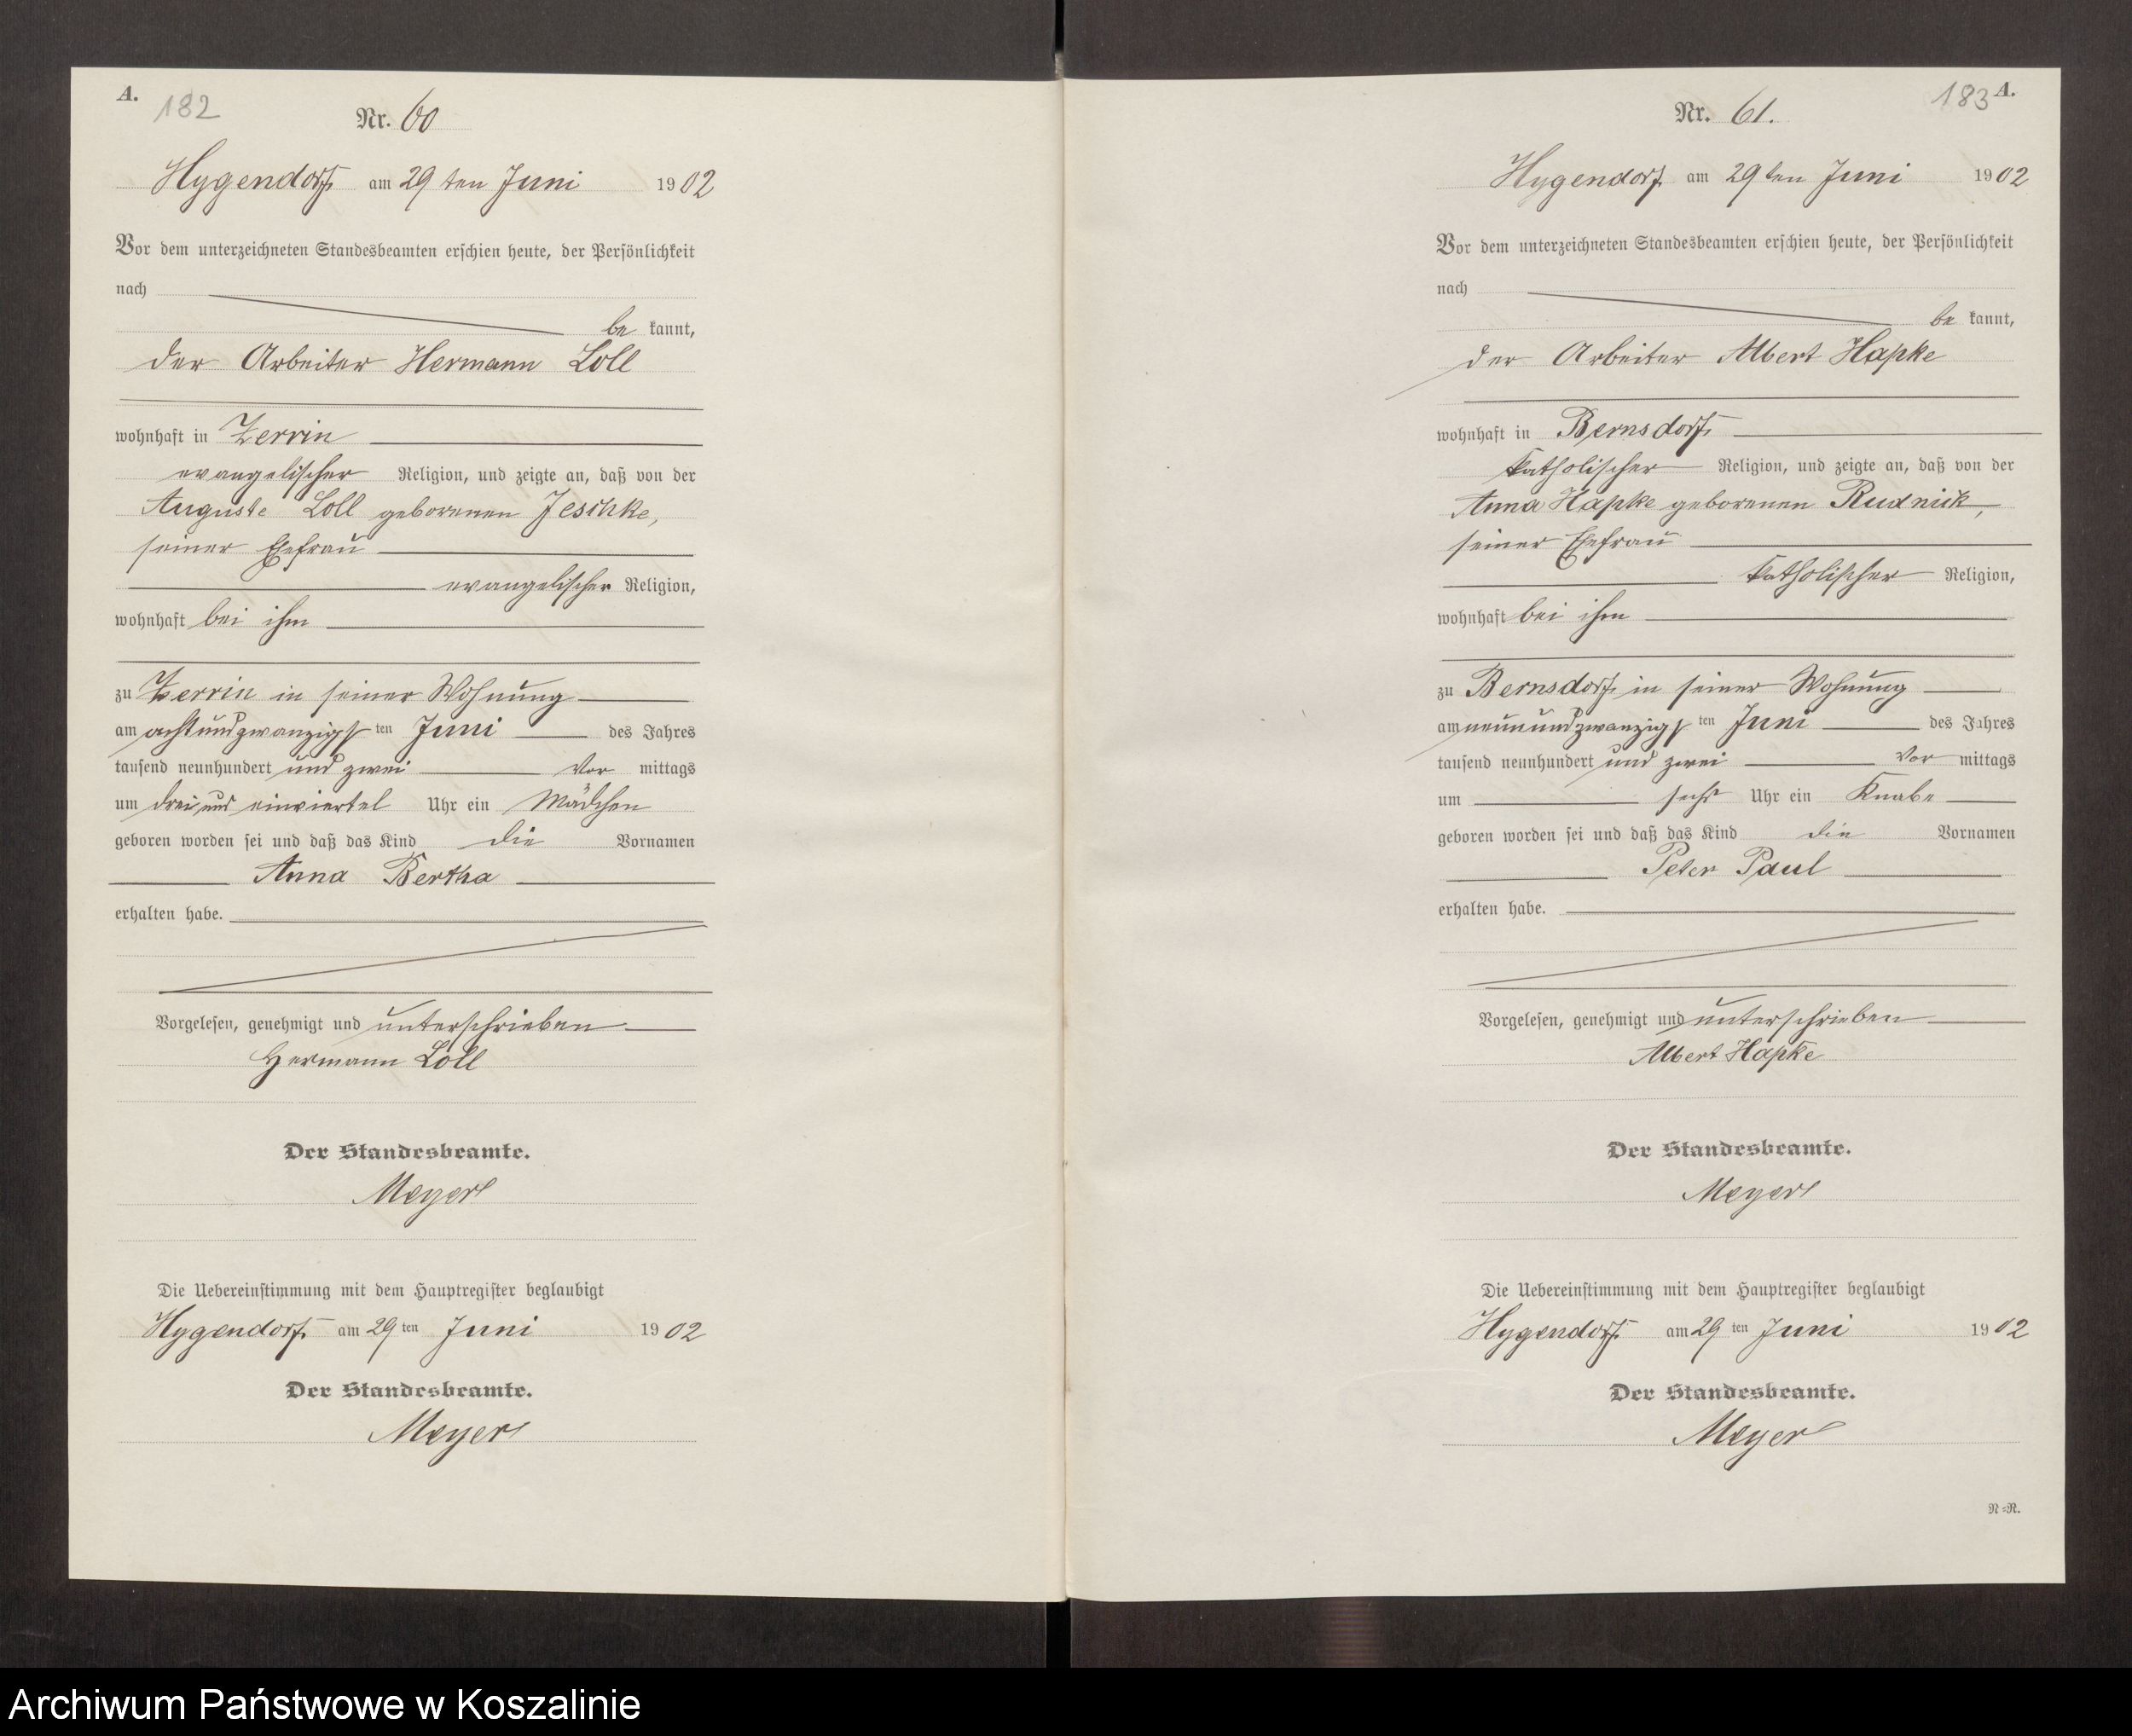 A.
182
Nr. 60
Hygendorf am 29 ten Juni 1902
Vor dem unterzeichneten Standesbeamten erschien heute, der Persönlichkeit
nach
be kannt,
der Arbeiter Hermann Loll
wohnhaft in Zerrin
evangelischer Religion, und zeigte an, daß von der
Auguste Loll geborenen Jeschke,
seiner Ehefrau
evangelischer Religion,
wohnhaft bei ihm
zu Zerrin in seiner Wohnung
am achtundzwanzigsten Juni des Jahres
tausend neunhundert und zwei Vor mittags
um drei und einviertel Uhr ein Mädchen
geboren worden sei und daß das Kind die Vornamen
Anna Bertha
erhalten habe.
Vorgelesen, genehmigt und unterschrieben
Hermann Loll
Der Standesbeamte.
Meyer
Die Uebereinstimmung mit dem Hauptregister beglaubigt
Hygendorf am 29 ten Juni 1902
Der Standesbeamte.
Meyer
183 A.
Nr. 61.
Hygendorf am 29 ten Juni 1902
Vor dem unterzeichneten Standesbeamten erschien heute, der Persönlichkeit
nach
be kannt,
der Arbeiter Albert Hapke
wohnhaft in Bernsdorf
katholischer Religion, und zeigte an, daß von der
Anna Hapke geborenen Rudnick,
seiner Ehefrau
katholischer Religion,
wohnhaft bei ihm
zu Bernsdorf in seiner Wohnung
am neunundzwanzigsten Juni des Jahres
tausend neunhundert und zwei Vor mittags
um sechs Uhr ein Knabe
geboren worden sei und daß das Kind die Vornamen
Peter Paul
erhalten habe.
Vorgelesen, genehmigt und unterschrieben
Albert Hapke
Der Standesbeamte.
Meyer
Die Uebereinstimmung mit dem Hauptregister beglaubigt
Hygendorf am 29 ten Juni 1902
Der Standesbeamte.
Meyer
N=R.
Archiwum Państwowe w Koszalinie